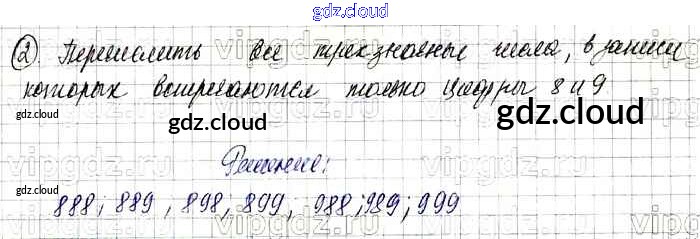 gdz.cloud
② Перечислить все трехзначные числа, в записи
которых встречаются только цифры 8 и 9
gdz.cloud gdz.cloud
Решение:
gdz.cloud gdz.cloud
888; 889, 898, 899, 988; 989; 999